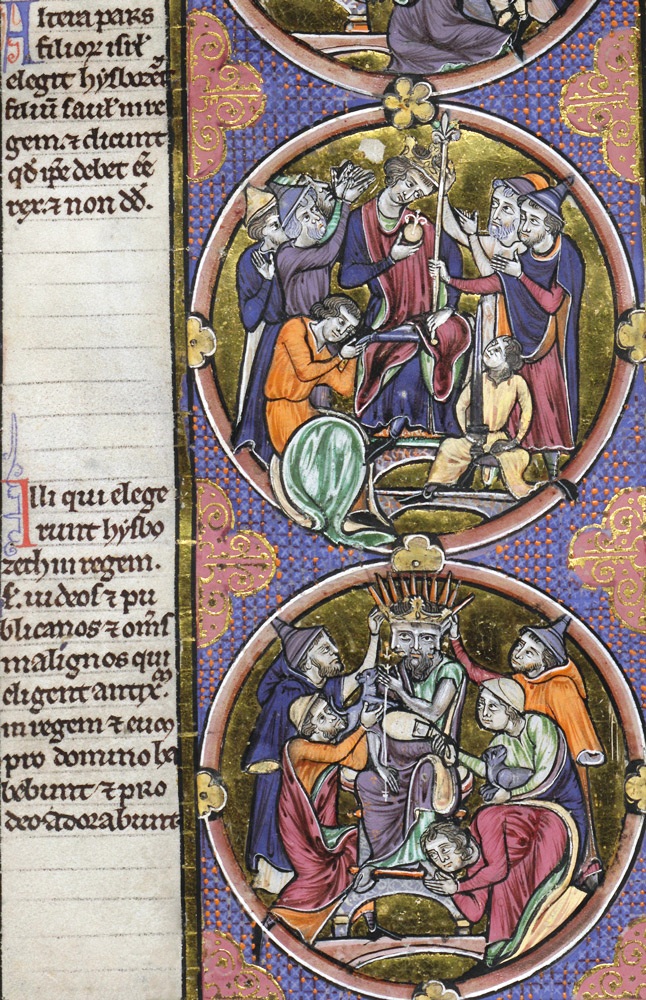 Altera pars
filiorꝝ isrł
elegit hysboseth
filiū sauł in re
gem. ⁊ dicunt
qđ ipse debet eē
rex. ⁊ non dđ.
Illi qui elege
runt hysbo
zeth in regem.
s. iudeos ⁊ pu
blicanos ⁊ om̄s
malignos qui
eligent antix͞m
in regem ⁊ eum
pro domino ha
bebunt ⁊ pro
deo adorabunt